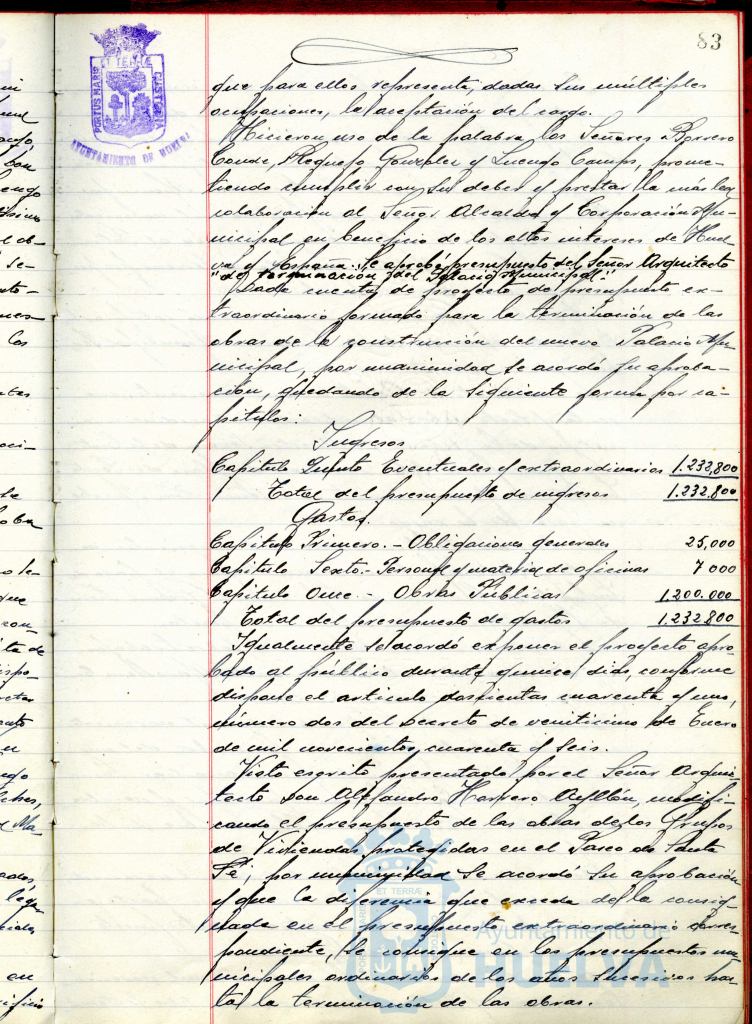 83
PORTUS MARIS ET TERRÆ CUSTODIA
AYUNTAMIENTO DE HUELVA
que para ellos representa, dadas sus múltiples
ocupaciones, la aceptación del cargo.
Hicieron uso de la palabra los Señores Borrero
Conde, Requejo González y Luengo Campos, prome-
tiendo cumplir con su deber y prestar la más leal
colaboración al Señor Alcalde y Corporación Mu-
nicipal en beneficio de los altos intereses de Huel-
va y España. Se aprobó presupuesto del Señor Arquitecto
"de terminación del Palacio Municipal"
Dada cuenta de proyecto de presupuesto ex-
traordinario formado para la terminación de las
obras de la construcción del nuevo Palacio Mu-
nicipal, por unanimidad se acordó su aproba-
ción, quedando de la siguiente forma por ca-
pítulos:
Ingresos
Capítulo Quinto Eventuales y extraordinarios 1.232,800
Total del presupuesto de ingresos 1.232.800
Gastos.
Capítulo Primero.- Obligaciones generales 25,000
Capítulo Sexto.- Personal y material de oficinas 7000
Capítulo Once.- Obras Públicas 1.200.000
Total del presupuesto de gastos 1.232.800
Igualmente se acordó exponer el proyecto apro-
bado al público durante quince días, conforme
dispone el artículo doscientos cuarenta y uno,
número dos del Decreto de veinticinco de Enero
de mil novecientos cuarenta y seis.
Visto escrito presentado por el Señor Arqui-
tecto Don Alejandro Herrero Ayllón, modifi-
cando el presupuesto de las obras de los Grupos
de Viviendas protegidas en el Paseo de Santa
Fé, por unanimidad se acordó su aprobación
y que la diferencia que exceda de la consig-
nada en el presupuesto extraordinario corres-
pondiente, se consigne en los presupuestos mu-
nicipales ordinarios de los años sucesivos has-
ta la terminación de las obras.
Ayuntamiento de
HUELVA